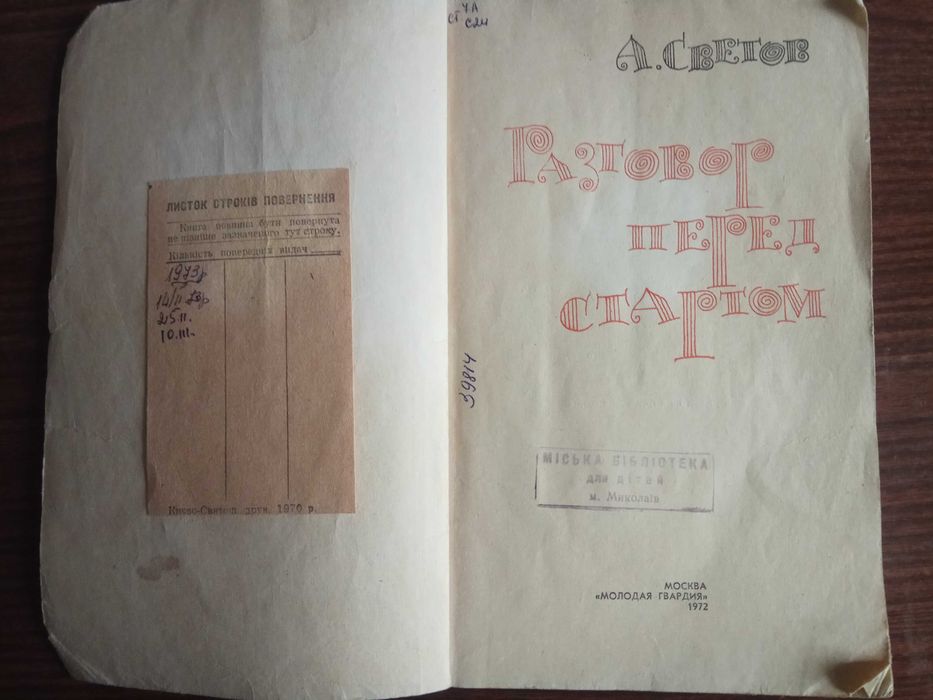 ЛИСТОК СТРОКІВ ПОВЕРНЕННЯ
Книга повинна бути повернута
не пізніше зазначеного тут строку.
Кількість попередніх видач
1973р
14/II 73р
25.II.
10.III.
друк. 1970 р.
ЧА
СТ С24
А. СВЕТОВ
РАЗГОВОР
ПЕРЕД
СТАРТОМ
39814
МІСЬКА БІБЛІОТЕКА
для дітей
м. Миколаїв
МОСКВА
«МОЛОДАЯ ГВАРДИЯ»
1972